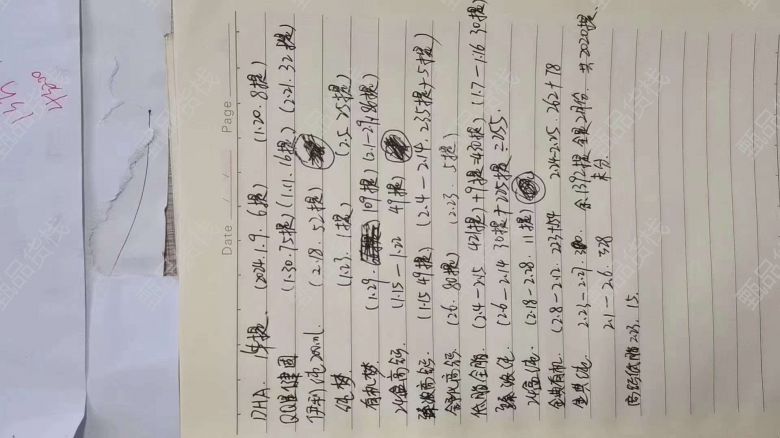 Date
Page
DHA. 1件提. (2024.1.9. 6提) (1.20. 8提)
QQ星健固 (1.30. 75提) (1.11. 16提) (2.21. 32提)
伊利纯200ml. (2.18. 52提)
纯梦 (1.23. 1提) (2.5. 25提)
有机梦 (1.29. 109提) (2.1-29. 提)
24盒高钙 (1.15-1.22 49提)
臻浓高钙. (1.15 49提) (2.4-2.14. 235提+5提)
舒化高钙 (2.6. 80提) (2.23. 5提)
低脂全脂. (2.4-2.15 421提)+9提= (1.7-1.16 30提)
臻浓纯. (2.6-2.14 30提+225提=255.
24盒纯. (2.18-2.28. 11提)
金典有机 (2.8-2.22. 223+ 2.24-2.25. 262+78
金典纯. 2.23-2.27. 余1392提 全是2月份 共2020提.
2.1-2.6. 328 未分.
低脂 2.23. 15.